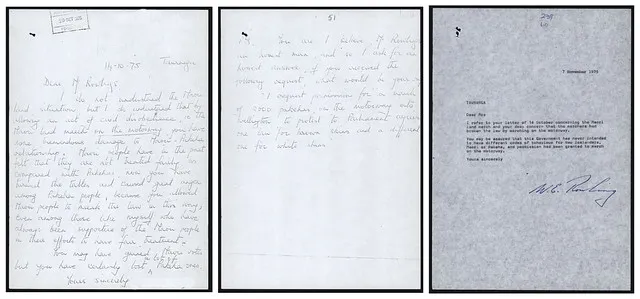 14-10-75 Tauranga
Dear Mr Rowling,
I do not understand the Maori
land situation, but I do understand that by
allowing an act of civil disobedience in the
Maori land march on the motorway you have
done tremendous damage to Maori-Pakeha
relationships. Maori people have in the past
felt that they are not treated fairly as
compared with Pakehas, now you have
turned the tables and caused great anger
among Pakeha people, because you allowed
Maori people to break the law in this way,
even among those like myself who have
always been supportive of the Maori people
in their efforts to have fair treatment.
You may have gained Maori votes
but you have certainly lost Pakeha ones.
Yours sincerely
51
P.S. You are I believe, Mr Rowling
an honest man and so I ask for an
honest answer, if you received the
following request what would be your
"I request permission for a march
of 5000 pakehas on the motorway into
Wellington to protest to Parliament against
one law for brown skins and a different
one for white skins"
7 November 1975
TAURANGA
Dear Mrs
I refer to your letter of 14 October concerning the Maori
Land march and your deep concern that the marchers had
broken the law by marching on the motorway.
You may be assured that this Government has never intended
to have different codes of behaviour for New Zealanders,
Maori or Pakeha, and permission had been granted to march
on the motorway.
Yours sincerely
W.E. Rowling